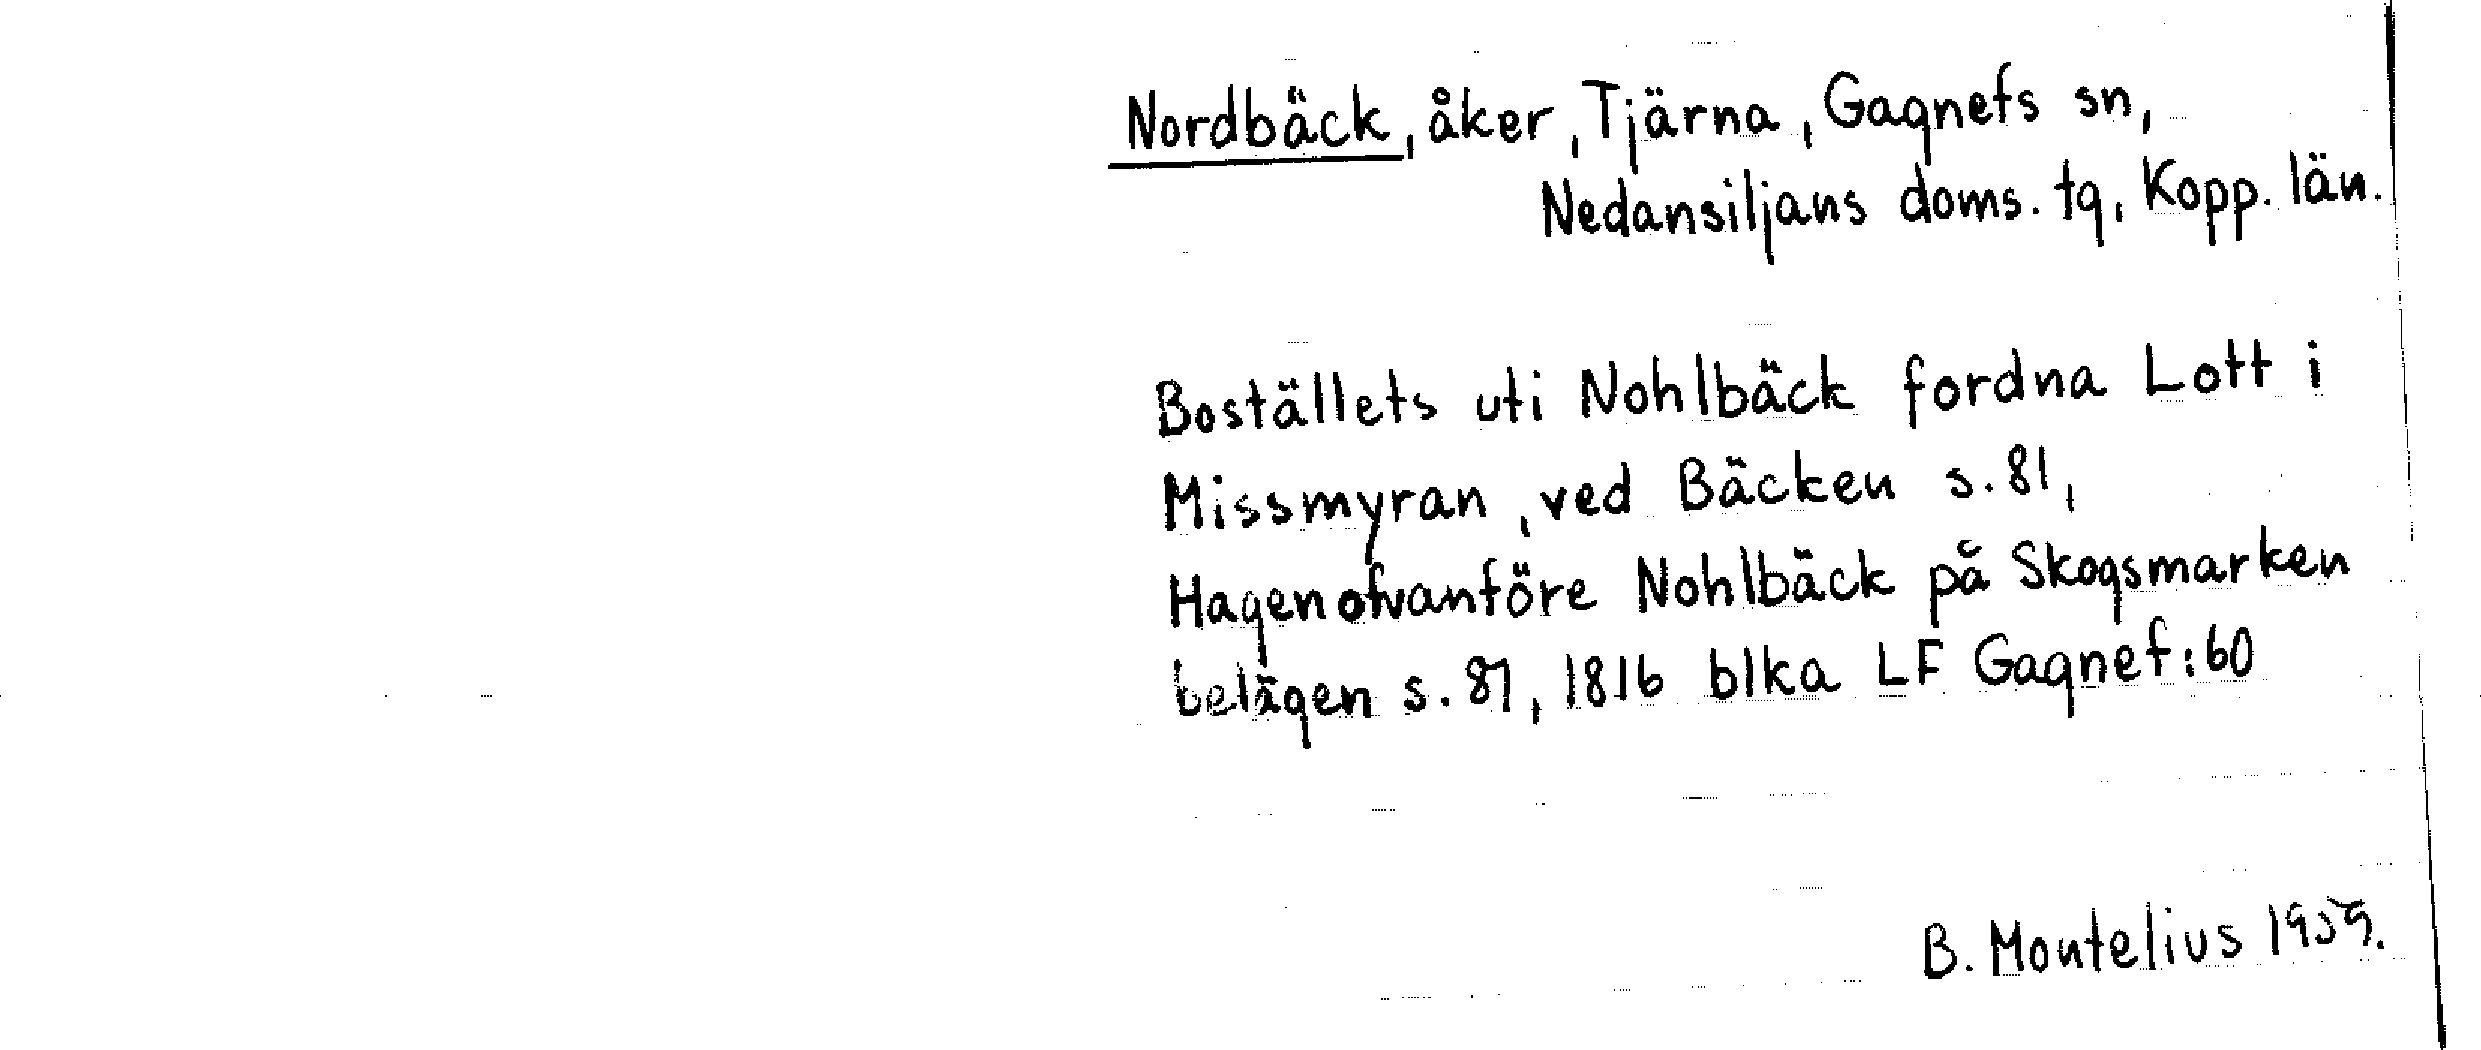 Nordbäck, åker, Tjärna, Gagnefs sn,
Nedansiljans doms. tg, Kopp. län.
Boställets uti Nohlbäck fordna Lott i
Missmyran, ved Bäcken s. 81,
Hagen ofvanföre Nohlbäck på Skogsmarken
belägen s. 87, 1816 blka LF Gagnef: 60
B. Montelius 1959.